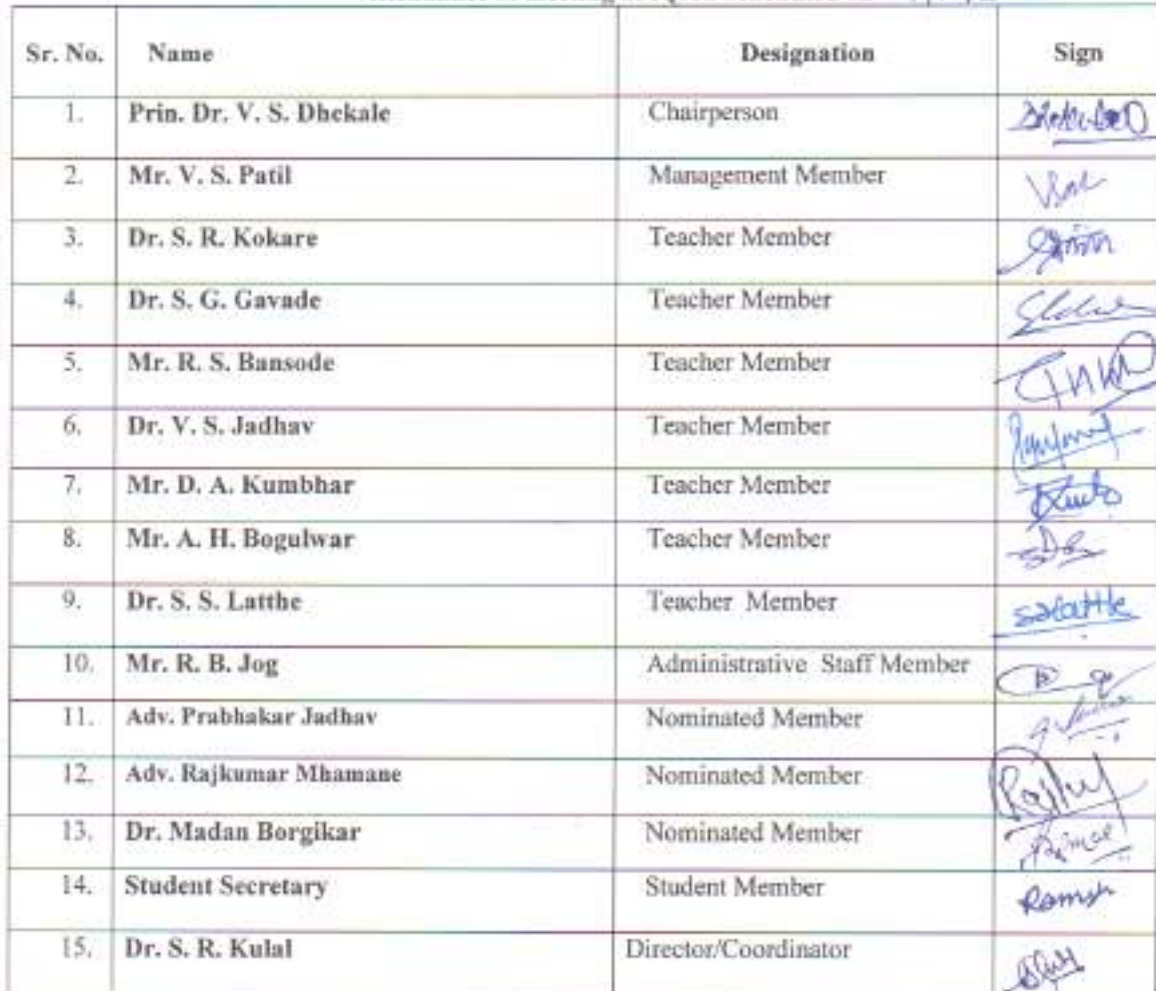 Sr. No. Name Designation Sign
1. Prin. Dr. V. S. Dhekale Chairperson
2. Mr. V. S. Patil Management Member
3. Dr. S. R. Kokare Teacher Member
4. Dr. S. G. Gavade Teacher Member
5. Mr. R. S. Bansode Teacher Member
6. Dr. V. S. Jadhav Teacher Member
7. Mr. D. A. Kumbhar Teacher Member
8. Mr. A. H. Bogulwar Teacher Member
9. Dr. S. S. Latthe Teacher Member
10. Mr. R. B. Jog Administrative Staff Member
11. Adv. Prabhakar Jadhav Nominated Member
12. Adv. Rajkumar Mhamane Nominated Member
13. Dr. Madan Borgikar Nominated Member
14. Student Secretary Student Member
15. Dr. S. R. Kulal Director/Coordinator